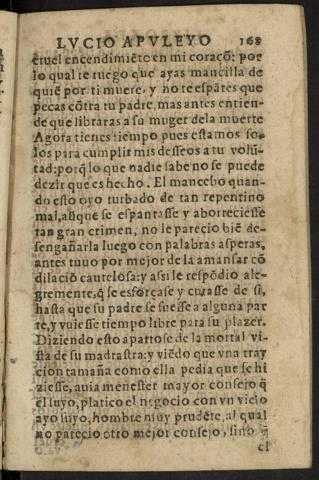 LVCIO APVLEYO 168
cruel encendimiẽto en mi coraçõ: por
lo qual te ruego que ayas manzilla de
quiẽ por ti muere, y no te espãtes que
pecas cõtra tu padre, mas antes entien-
de que libraras a su muger dela muerte
Agora tienes tiempo pues estamos so-
los para cumplir mis desseos a tu volũ-
tad: porq̃ lo que nadie sabe no se puede
dezir que es hecho. El mancebo quan-
do esto oyo turbado de tan repentino
mal, aũque se espantasse y aborreciesse
tan gran crimen, no le parecio biẽ de-
sengañarla luego con palabras asperas,
antes tuuo por mejor de la amansar cõ
dilaciõ cautelosa: y assi le respõdio ale-
gremente, q̃ se esforçase y curasse de si,
hasta que su padre se fuesse a alguna par
te, y vuiesse tiempo libre para su plazer.
Diziendo esto apartose de la mortal vi-
sta de su madrastra: y viẽdo que vna tray
cion tamaña como ella pedia que se hi
ziesse, auia menester mayor consejo q̃
el suyo, platico el negocio con vn viejo
ayo suyo, hombre muy prudẽte, al qual
no parecio otro mejor consejo, sino q̃
el